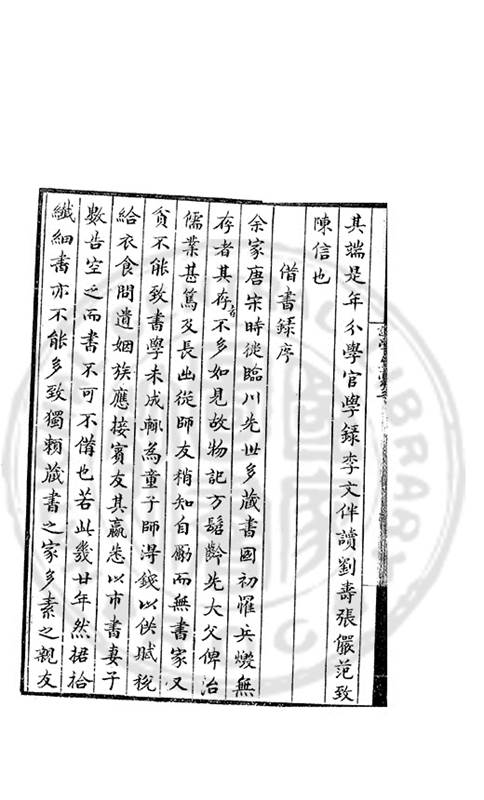 其端是年分學官學錄李文伴讀劉壽張儼范致
陳信也
借書錄序
余家唐宋時從臨川先世多藏書國初罹兵燹無
存者其存者不多如見故物記方髫齡先大父俾治
儒業甚篤及長出從師友稍知自勵而無書家又
貧不能致書學未成輒為童子師得錢以供賦稅
給衣食問遺姻族應接賓友其贏悉以市書妻子
數告空乏而書不可不備也若此幾廿年然捃拾
纖細書亦不能多致獨賴藏書之家多素之親友